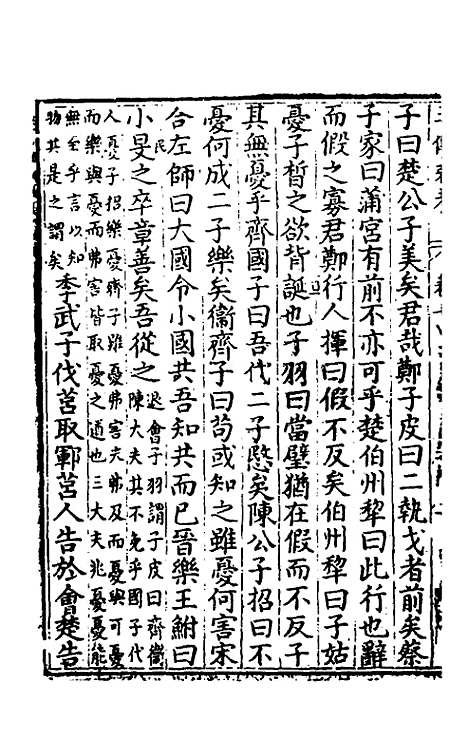 子曰楚公子美矣君哉鄭子皮曰二執戈者前矣蔡
子家曰蒲宮有前不亦可乎楚伯州犂曰此行也辭
而假之寡君鄭行人揮曰假不反矣伯州犂曰子姑
憂子晳之欲背誕也子羽曰當璧猶在假而不反子
其無憂乎齊國子曰吾代二子愍矣陳公子招曰不
憂何成二子樂矣衞齊子曰苟或知之雖憂何害宋
合左師曰大國令小國共吾知共而已晉樂王鮒曰
小旻之卒章善矣吾從之
退會子羽謂子皮曰齊衞
陳大夫其不免乎國子代
人憂子招樂憂齊子雖憂弗害夫弗及而憂與可憂
而樂與憂而弗害皆取憂之道也三大夫兆憂憂能
無至乎言以知
物其是之謂矣
季武子伐莒取鄆莒人告於會楚告